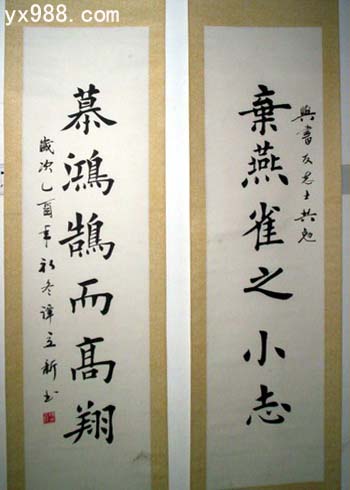 yx988.com
與書友志士共勉
棄燕雀之小志
慕鴻鵠而高翔
歲次乙酉年初冬譚立新書